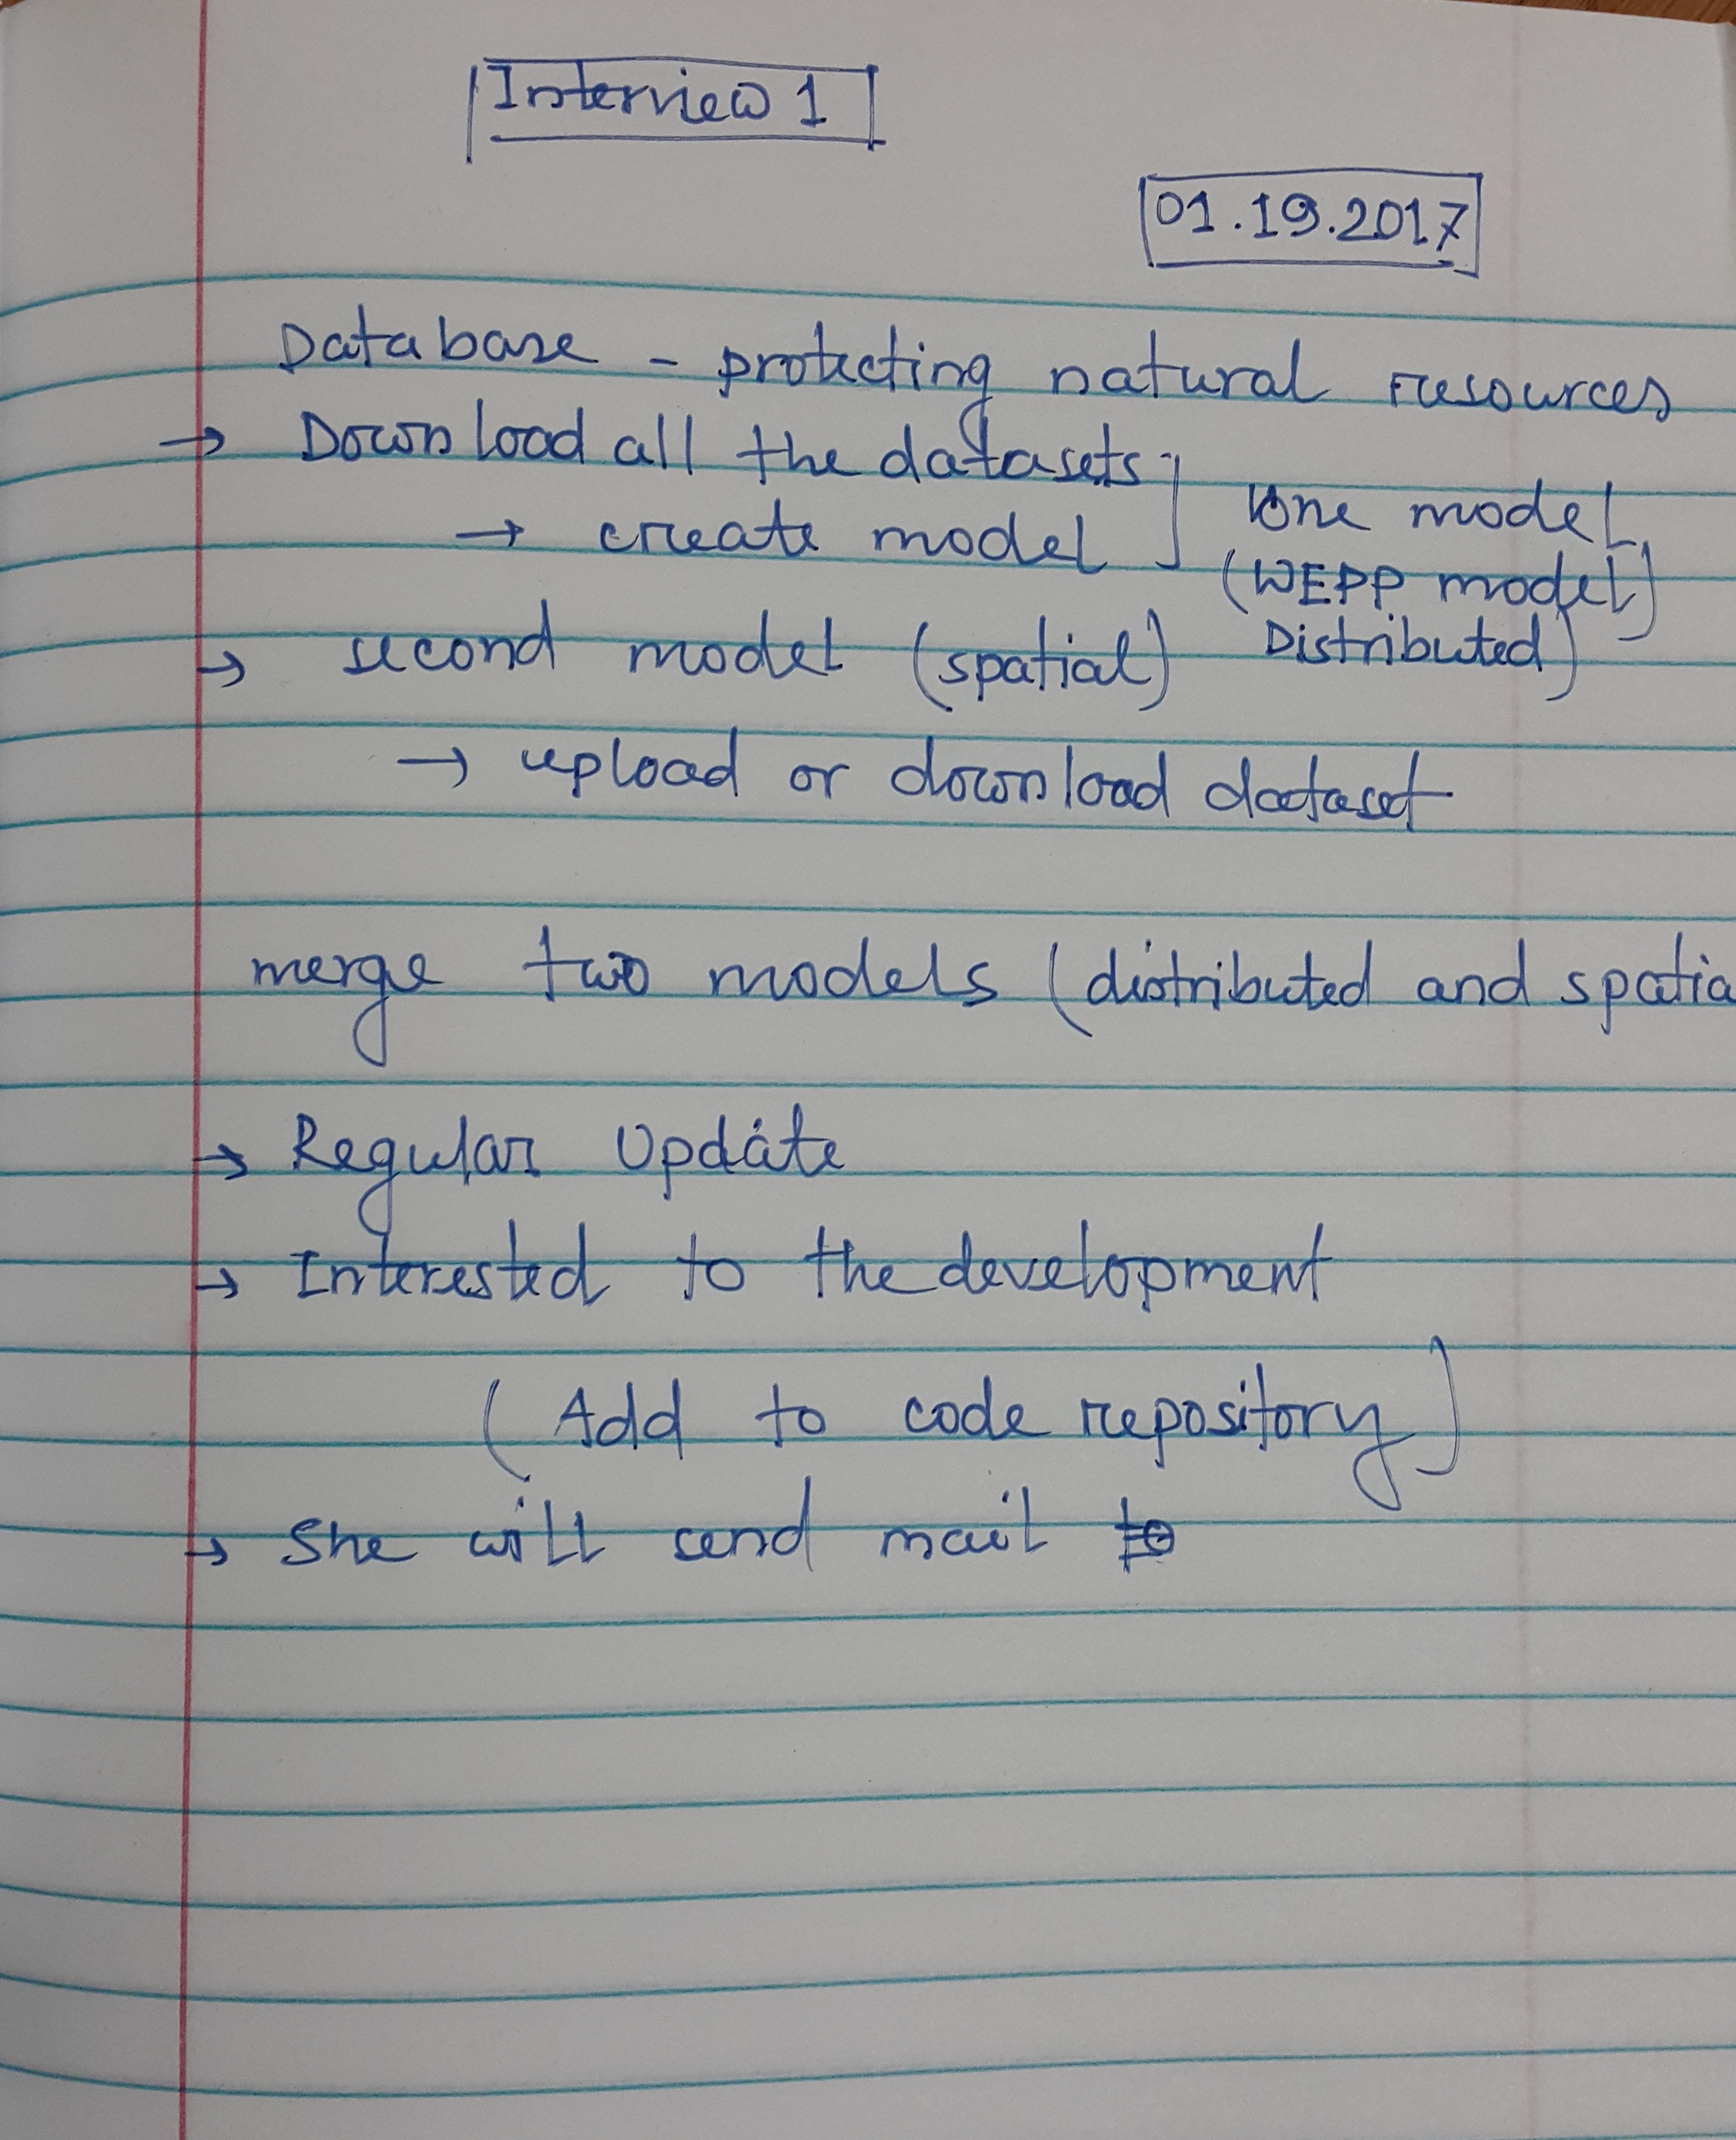 Interview 1
01.19.2017
Database - protecting natural resources
→ Download all the datasets
→ create model
One model
(WEPP model)
Distributed)
→ second model (spatial)
→ upload or download dataset
merge two models (distributed and spatia
→ Regular Update
→ Interested to the development
(Add to code repository)
→ She will send mail to